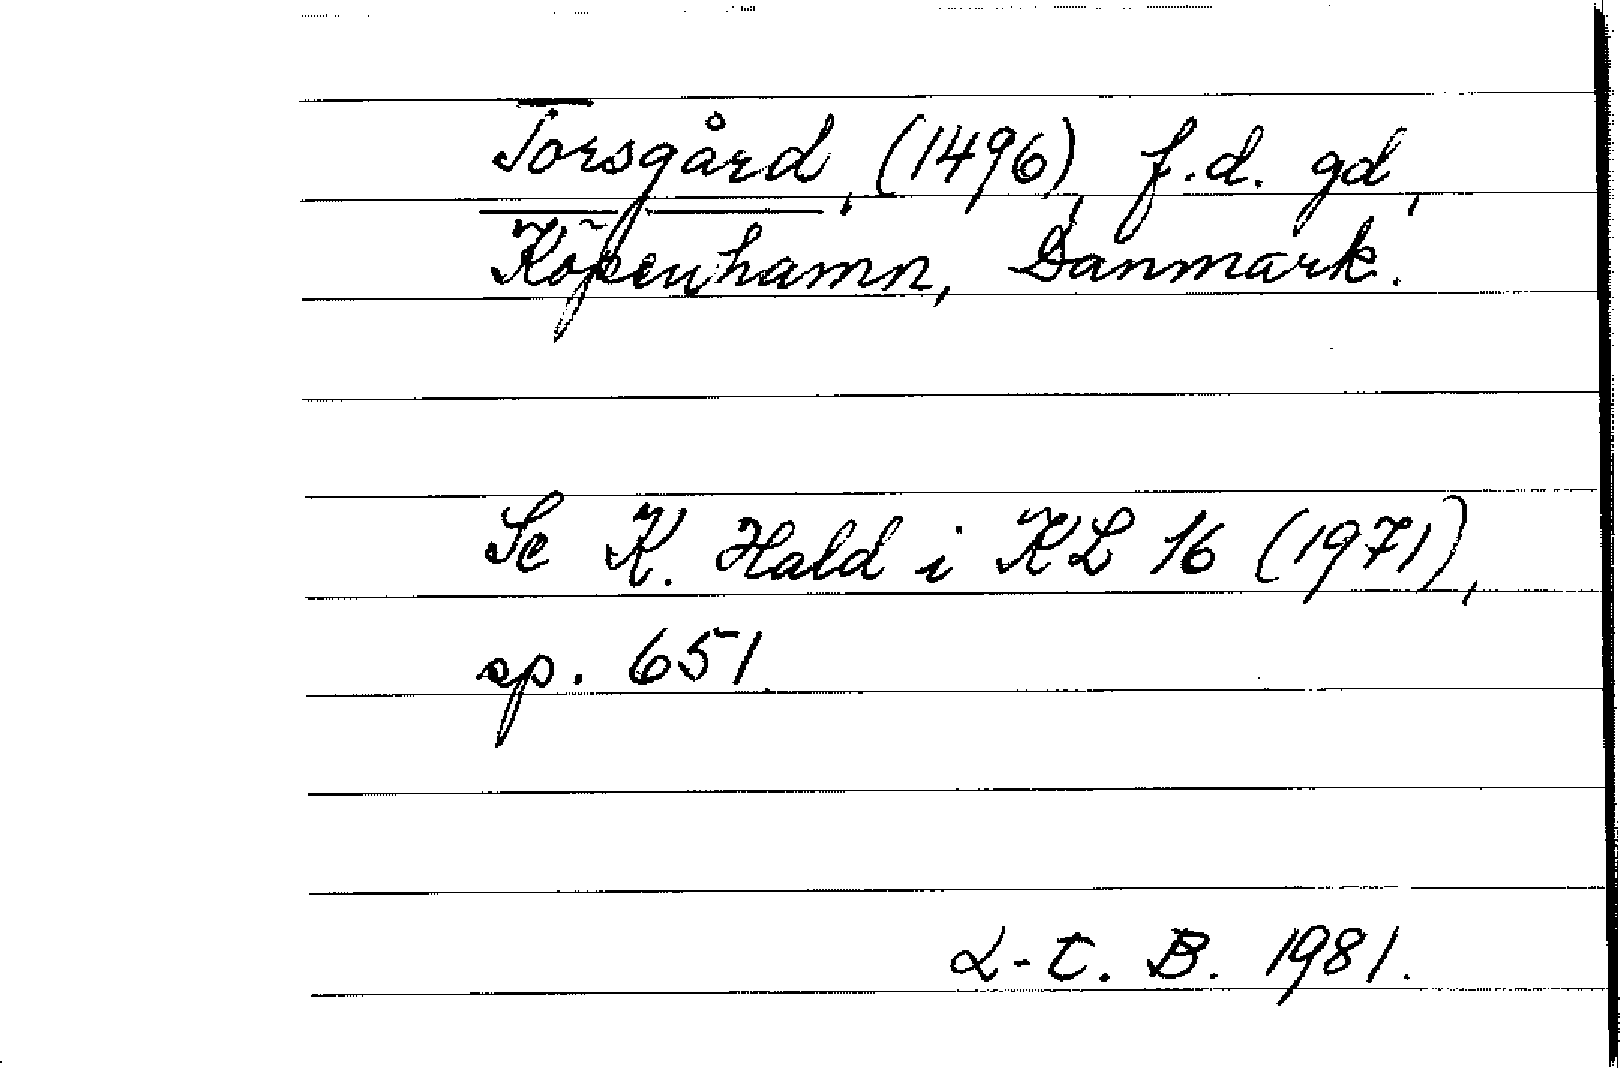 Torsgård, (1496), f.d. gd,
Köpenhamn, Danmark.
Se K. Hald i KL 16 (1971),
sp. 651.
L-E. B. 1981.